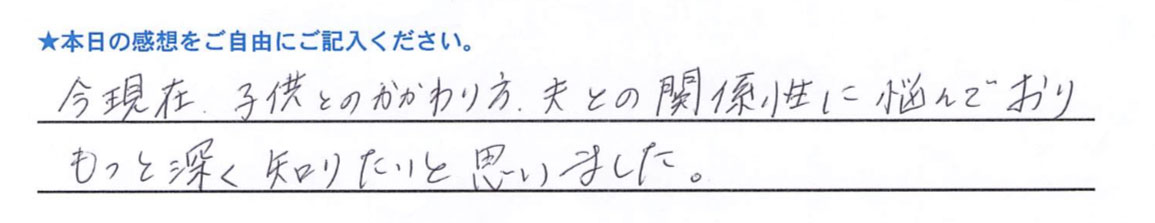 ★本日の感想をご自由にご記入ください。
今現在、子供とのかかわり方、夫との関係性に悩んでおり
もっと深く知りたいと思いました。